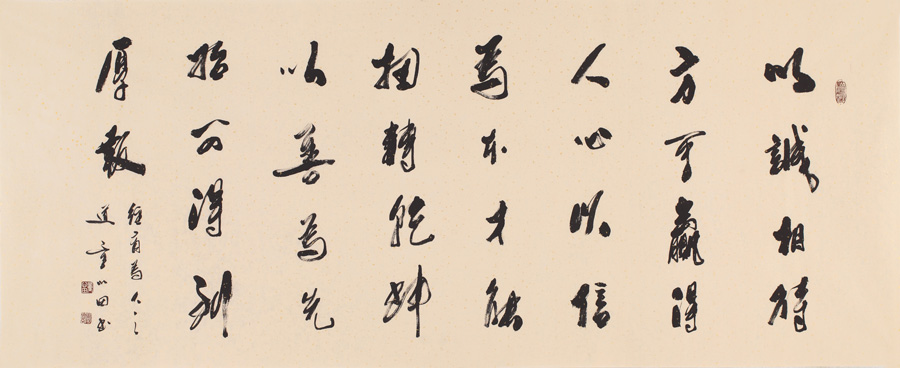 以誠相待
方可贏得
人心以信
為本才能
扭轉乾坤
以善為先
始可得到
厚報
經商為人之
道 童心田书